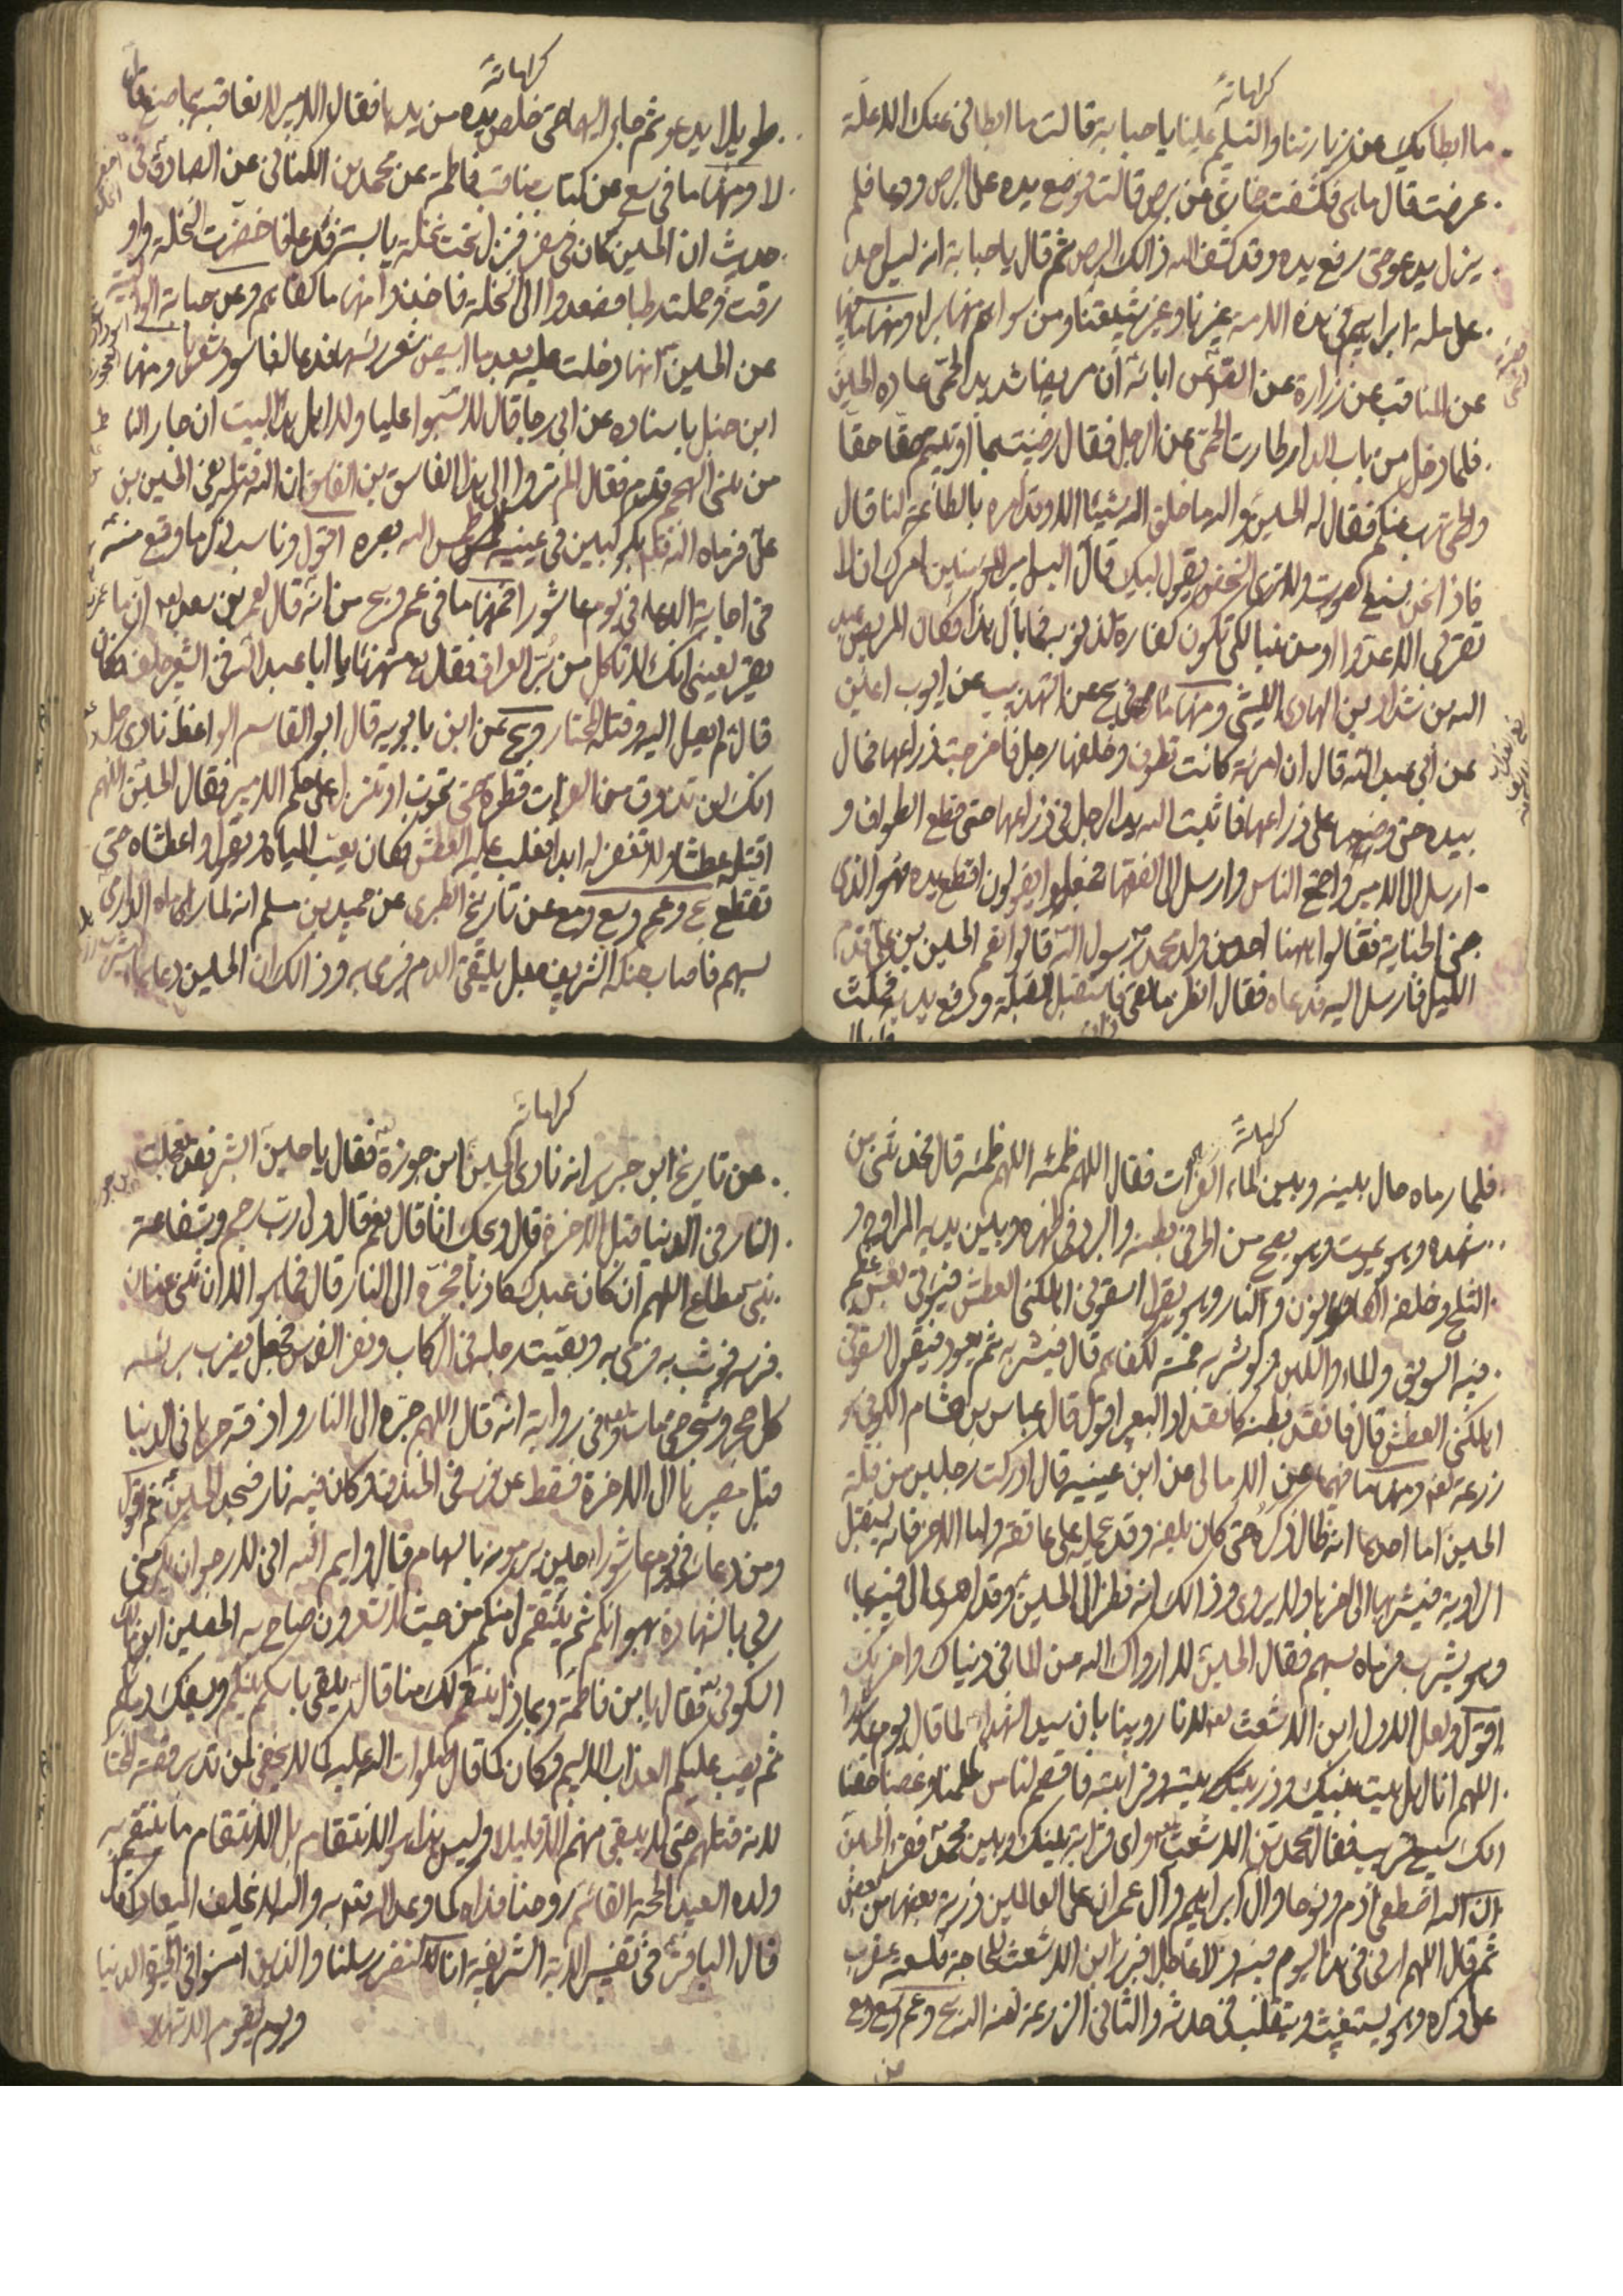 كراماته
ما ابطا بك عن زيارتنا والتسليم علينا يا حبابة قالت ما ابطانى عنك الا علة
عرضت قال ما هى فكشفت خمارى عن برص قالت فوضع يده على البرص ودعا فلم
يزل يدعو حتى رفع يده وقد كشف الله ذالك البرص ثم قال يا حبابة انه ليس احد
على ملة ابراهيم فى هذه الامة غيرنا وغير شيعتنا ومن سواهم منها براء ومنها ما فيها
عن المناقب عن زرارة عن آبائه ان مريضا شديد الحمى عاده الحسين
فلما دخل من باب الدار طارت الحمى عن الرجل فقال رضيت بما اوتيتم حقا حقا
والحمى تهرب عنكم فقال له الحسين والله ما خلق الله شيئا الا وقد امره بالطاعة لنا قال
فاذا نحن نسمع الصوت ولا نرى الشخص يقول لبيك قال اليس امير المؤمنين امرك ان لا
تقربى الا عدوا او مذنبا لكى تكون كفارة لذنوب فما بال هذا فكان المريض عبد
الله بن شداد بن الهادى الليثى ومنها ما فى يج عن التهذيب عن ايوب اعين
عن ابى عبد الله قال ان امرئة كانت تطوف وخلفها رجل فاخرجت ذراعها فمال
بيده حتى وضعها على ذراعها فاثبت الله يد الرجل فى ذراعها حتى قطع الطواف و
ارسل الى الامير واجتمع الناس وارسل الى الفقها فجعلوا يقولون اقطع يده فهو الذى
جنى الجناية فقالوا ههنا احد من ولد محمد رسول الله قالوا نعم الحسين بن على قدم
الليل فارسل اليه فدعاه فقال انظر ما لقى فاستقبل القبلة ورفع يديه فمكث
كراماته
طويلا يدعو ثم جاء اليها حتى خلص يده من يدها فقال الامير الا نعاقبه بما صنع قال
لا ومنها ما فى سع عن كتاب مناقب فاطمة عن محمد بن الكنانى عن الصادق فى
حديث ان الحسين كان فى سفر فنزل تحت نخلة يابستر فدعا فاخضرت النخلة واو
رقت وحملت رطبا فصعدوا الى النخلة فاخذوا منها ما كفاهم وعن حبابة الوالبية
عن الحسين انها دخلت عليه بعد ما ابيض شعر رئسها فدعا لها فاسود شعرها ومنها
ابن حنبل باسناده عن ابى رجا قال لا تسبوا عليا ولا اهل هذا البيت ان جار النا
من بلنى الهجيم قدم فقال الم تروا الى هذا الفاسق بن الفاسق ان الله قتله يعنى الحسين بن
على فرماه الله بكوكبين فى عينيه طمس الله بصره اقول وناسب ذكر ما وقع منه
فى اجابة الدعاء فى يوم عاشورا فمنها ما فى عم ويج من انه قال لعمر بن سعد ان ما
يقر بعينى انك لا تاكل من بُرّ العراق فقال مستهزئا يا ابا عبد الله فى الشعير خلف فكان
قال لم يصل اليه وقتله المختار ويج عن ابن بابويه قال ابو القاسم الواعظ نادى رجل
انك لن تذوق من الفرات قطرة حتى تموت او تنزل على حكم الامير فقال الحسين اللهم
اقتله عطشا ولا تغفر له ابدا فغلب عليه العطش فكان يعب المياه ويقول واعطشاه حتى
تقطع يج وعم وسع ومع عن تاريخ الطبرى عن حميد بن مسلم انه لما رماه الدارمى
بسهم فاصاب حنكه الشريف فجعل يلتقى الدم فرمى به وذالك ان الحسين دعا بماء ليشرب
كراماته
فلما رماه حال بينه وبين الماء الفرات فقال اللهم ظمئه اللهم ظمئه قال فحدثنى من
شهده وهو يموت وهو يصيح من الحر فى بطنه والبرد فى ظهره وبين يديه المراوح و
الثلج وخلفه الكانون والنار وهو يقول اسقونى اهلكنى العطش فيؤتى بعس عظيم
فيه السويق والماء واللبن لو شربه خمسة لكفاهم قال فيشربه ثم يعود فيقول اسقونى
اهلكنى العطش قال فانقد بطنه كانقداد البعير اقول قال عباس بن هشام الكوفى هو
زرعة لعنه ومنها ما فيهما عن الامالى عن ابن عيينيه قال ادركت رجلين من قتلة
الحسين اما احدهما انه طال ذكره حتى كان يلفه وقد يحمله على عاتقه واما الاخر فانه يستقبل
الراوية فيشربها الى اخرها ولا يروى وذالك انه نظر الى الحسين وقد اهوى الى فيه بماء
وهو يشرب فرماه بسهم فقال الحسين لا ارواك الله من الماء فى دنياك واخرتك
اقول ولعل الاول ابن الاشعث لعنه لانا روينا بان سيد الشهداء لما قال يوم عاشورا
اللهم انا اهل بيت نبيك وذريتك بيته وقرابته فاقصم لناس ظلمنا وغصبنا حقنا
انك سميع قريب فقال محمد بن الاشعث واى قرابة بينك وبين محمد فقرء الحسين
ان الله اصطفى آدم ونوحا وال ابراهيم وآل عمران على العالمين ذرية بعضها من بعض
ثم قال اللهم ارنى فى هذا اليوم فيه ذلا عاجلا فبرز ابن الاشعث للحاجة فلسعته عقرب
على ذكره وهو يستغيث ويتقلب فى حدثه والثانى الزرعة لعنه الله يج وعم وسع ومع
كراماته
عن تاريخ ابن جرير انه نادى الحسين ابن جوزة فقال يا حسين ابشر فقد تعجلت
النار فى الدنيا قبل الاخرة قال ويحك انا قال نعم قال ولى رب رحيم وشفاعة
نبى مطاع اللهم ان كان عبدك كاذبا فجره الى النار قال فما هو الا ان ثنى عنان
فرسه فوثب به فرمى به وبقيت رجله فى الركاب ونفر الفرس فجعل يضرب برئسه
كل حجر وشجر حتى مات وفى رواية انه قال اللهم جره الى النار واذقه حرها فى الدنيا
قبل مصيرنا الى الاخرة فسقط عن فرسه فى الخندق وكان فيه نار فسجد الحسين ثم اقول
ومن دعائه فى يوم عاشوراء حين يرمونه بالسهام قال وايم الله انى لارجو ان يكرمنى
ربى بالشهادة بهوانكم ثم ينتقم لى منكم من حيث لا تشعرون صاح به الحصين ابن مالك
السكونى فقال يا بن فاطمة وبما ذا ينتقم لك منا قال يلقى باسكم بينكم ويسفك دمائكم
ثم يصب عليكم العذاب الاليم فكان كما قال صلوات الله عليه كما لا يخفى لمن تدبر وقعة المختار
لانه قتلهم حتى لا يبقى منهم الا قليلا وليس هذا هو الانتقام بل الانتقام ما ينتقم به
ولده العبد الحجة القائم روحنا فداه كما وعد الله به والله لا يخلف الميعاد كما
قال الباقر فى تفسير الاية الشريفة انا لننصر رسلنا والذين امنوا فى الحيوة الدنيا
ويوم يقوم الاشهاد